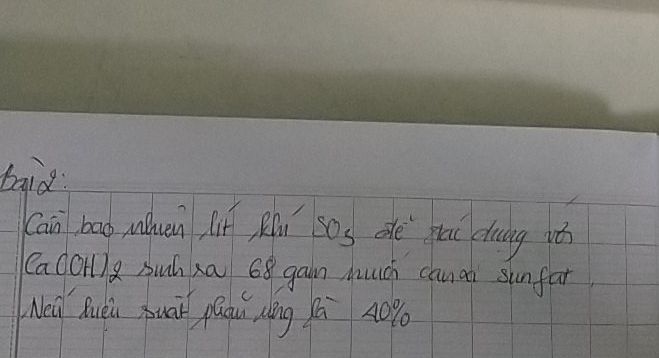 bài 2:
Cần bao nhiêu lít khí SO3 để tác dụng với
Ca(OH)2 sinh ra 68 gam muối canxi sunfat
Nếu hiệu suất phản ứng là 40%